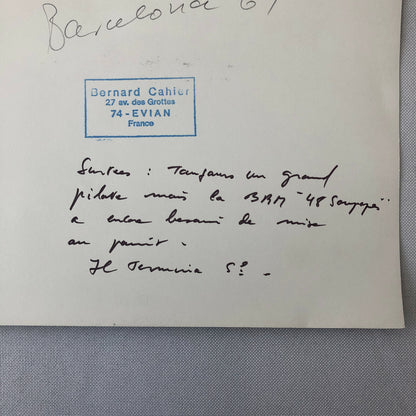 Barcelona 69
Bernard Cahier
27 av. des Grottes
74 - EVIAN
France
Surtees : Toujours un grand
pilote mais la BRM "48 Soupapes"
a encore besoin de mise
au point .
Il Termina 5e .